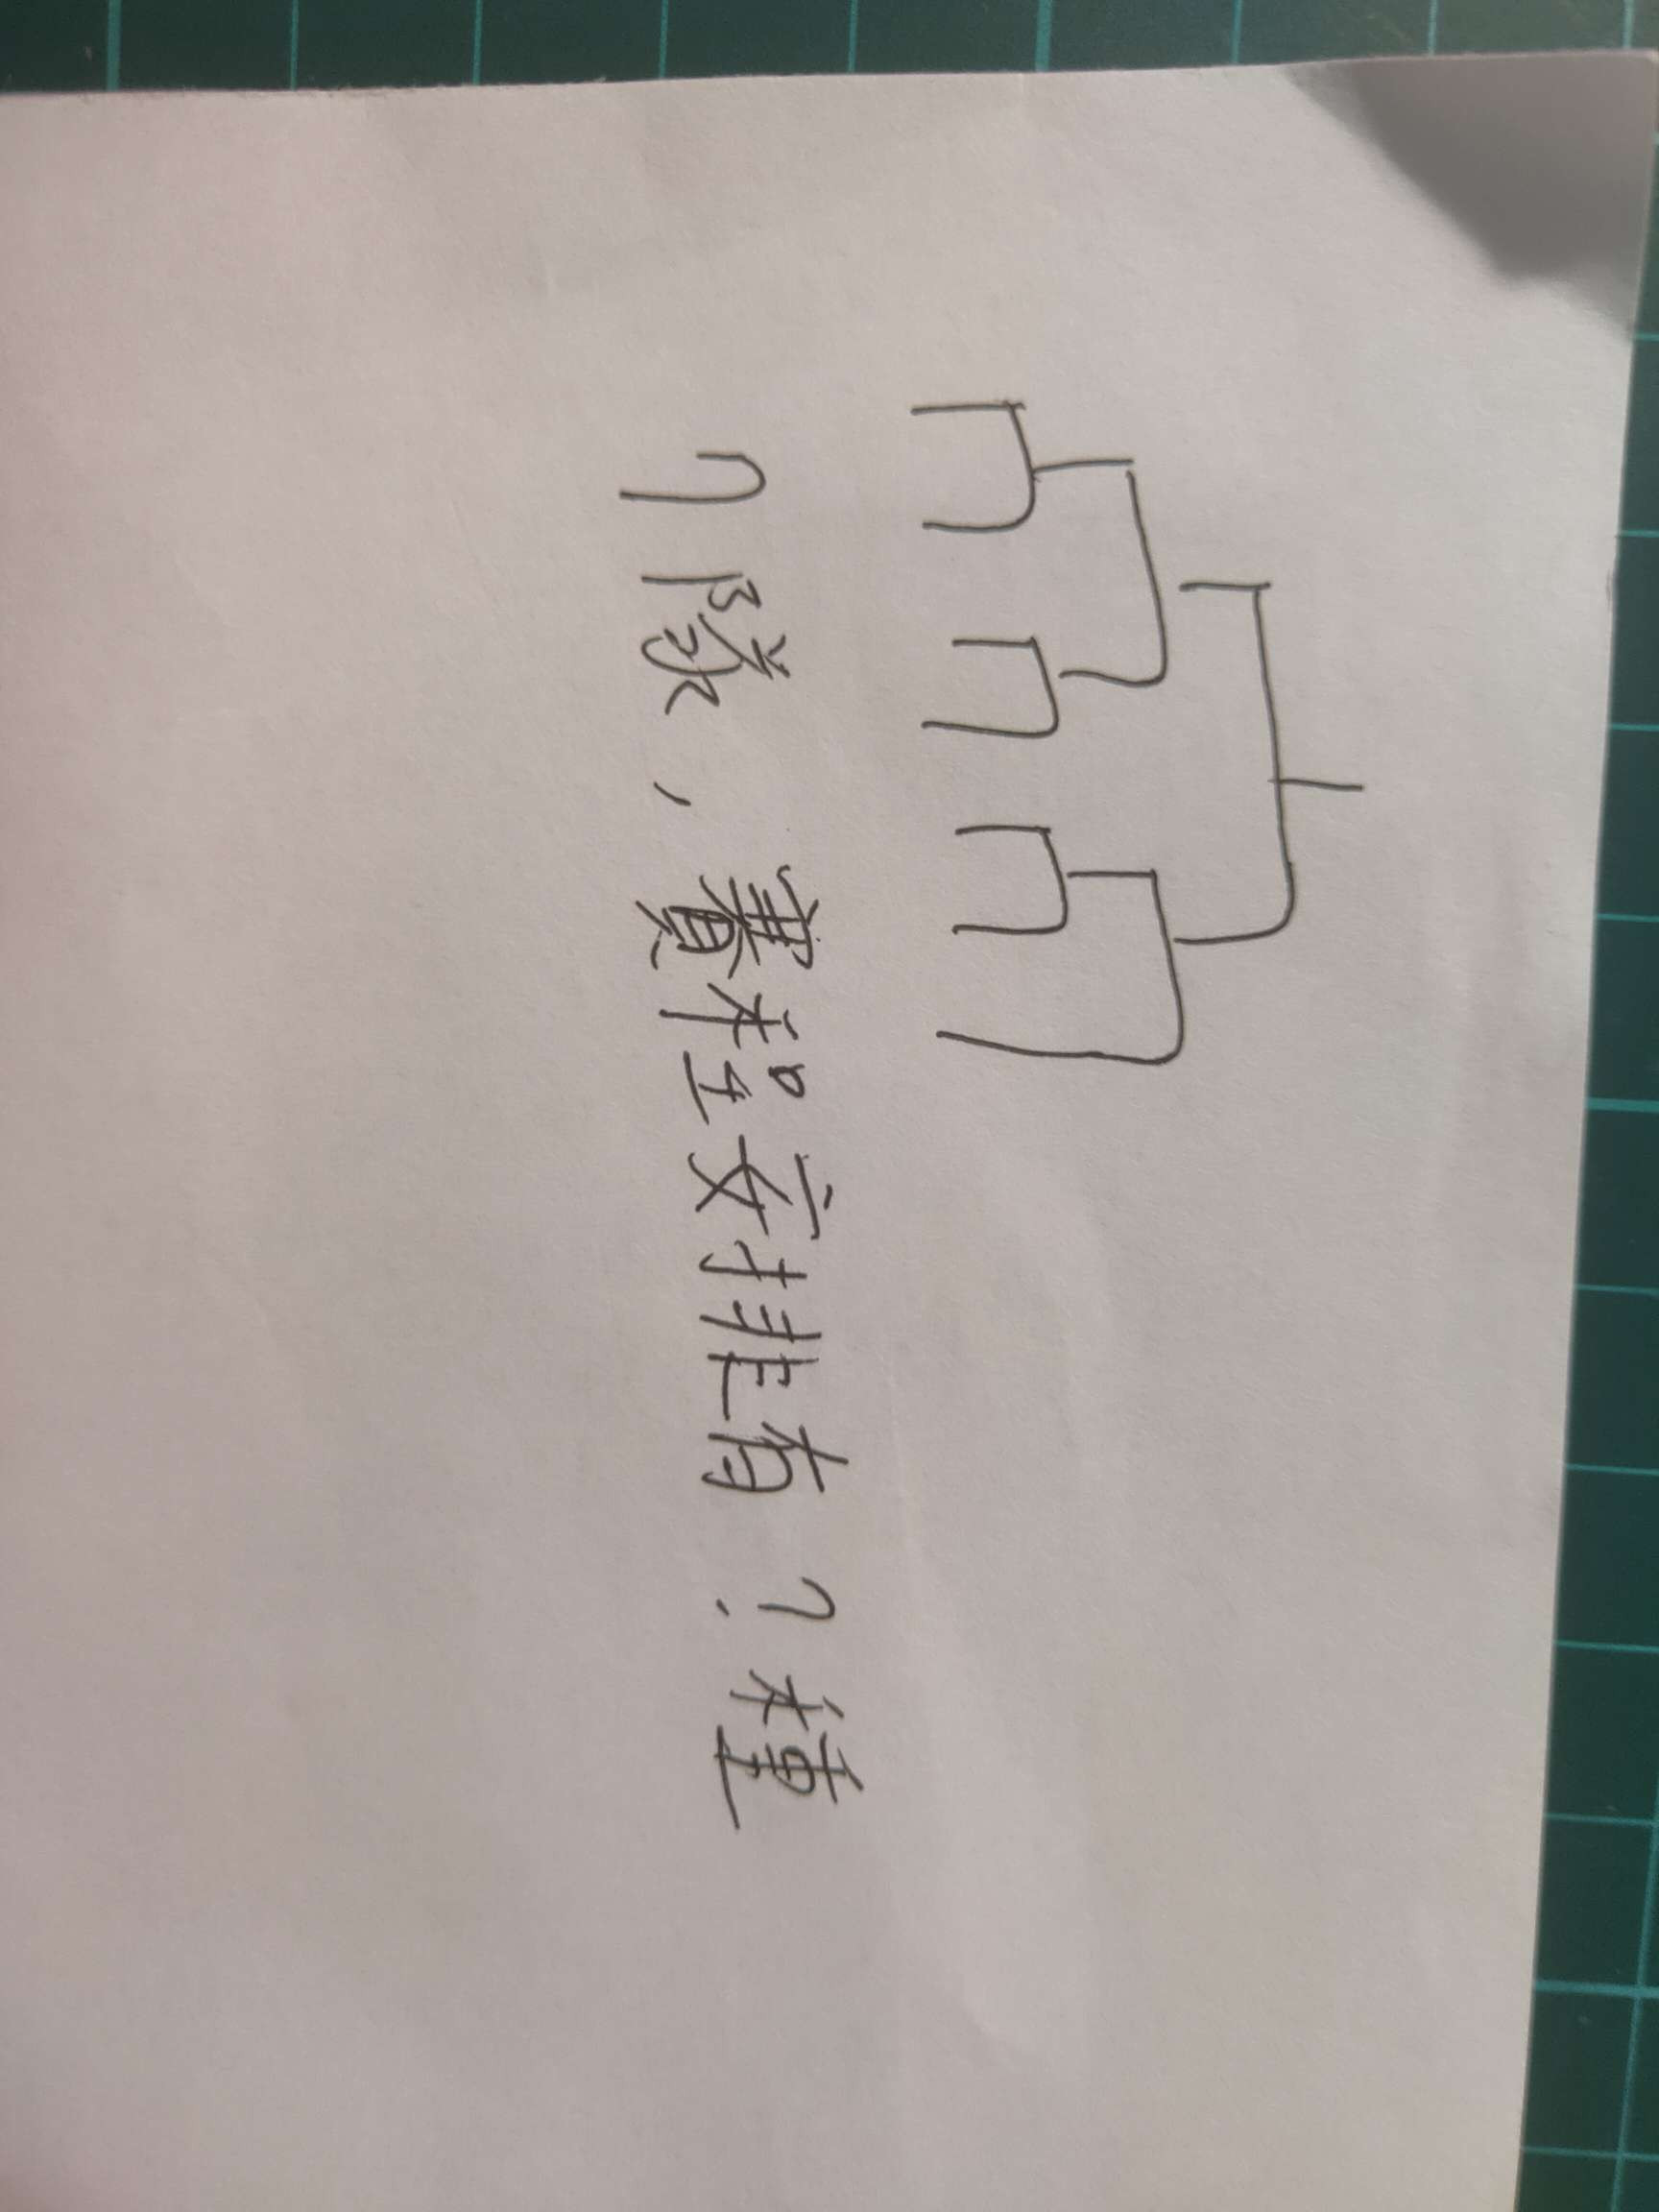 7隊，賽程安排有？種